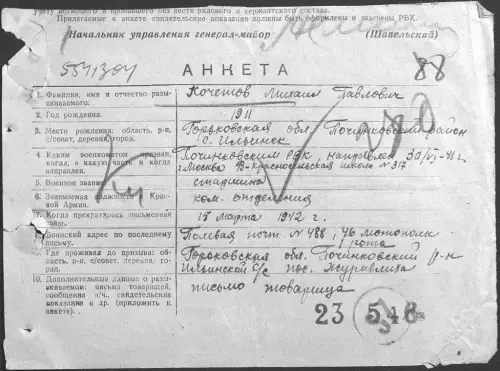 учету погибшего и пропавшего без вести рядового и сержантского состава.
Прилагаемые к анкете свидетельские показания должны быть оформлены и заверены РВК.
Начальник управления генерал-майор (Шавельский)
5541304
АНКЕТА
88
1. Фамилия, имя и отчество разыскиваемого. Кочетов Михаил Павлович
2. Год рождения. 1911
3. Место рождения: область, р-н, с/совет, деревня, город. Горьковская обл. Починковский район
с. Ильинск
4. Каким военкоматом призван, когда, в какую часть и когда направлен. Починковским РВК, направлен 30/VI-41 г.
г. Москва В-Красносельская школа № 317
5. Военное звание старшина
6. Занимаемая должность в Красной Армии. ком. отделения
7. Когда прекратилась письменная связь. 18 марта 1942 г.
8. Воинский адрес по последнему письму. Полевая почт № 488, 46 мотополк
рота
9. Где проживал до призыва: область, р-н, с/совет, деревня, город. Горьковская обл. Починковский р-н
Ильинский с/с пос. Журавлиха
10. Дополнительные данные о разыскиваемом: письма товарищей, сообщения в/ч, свидетельские показания и др. (приложить к анкете). письмо товарища
23 548